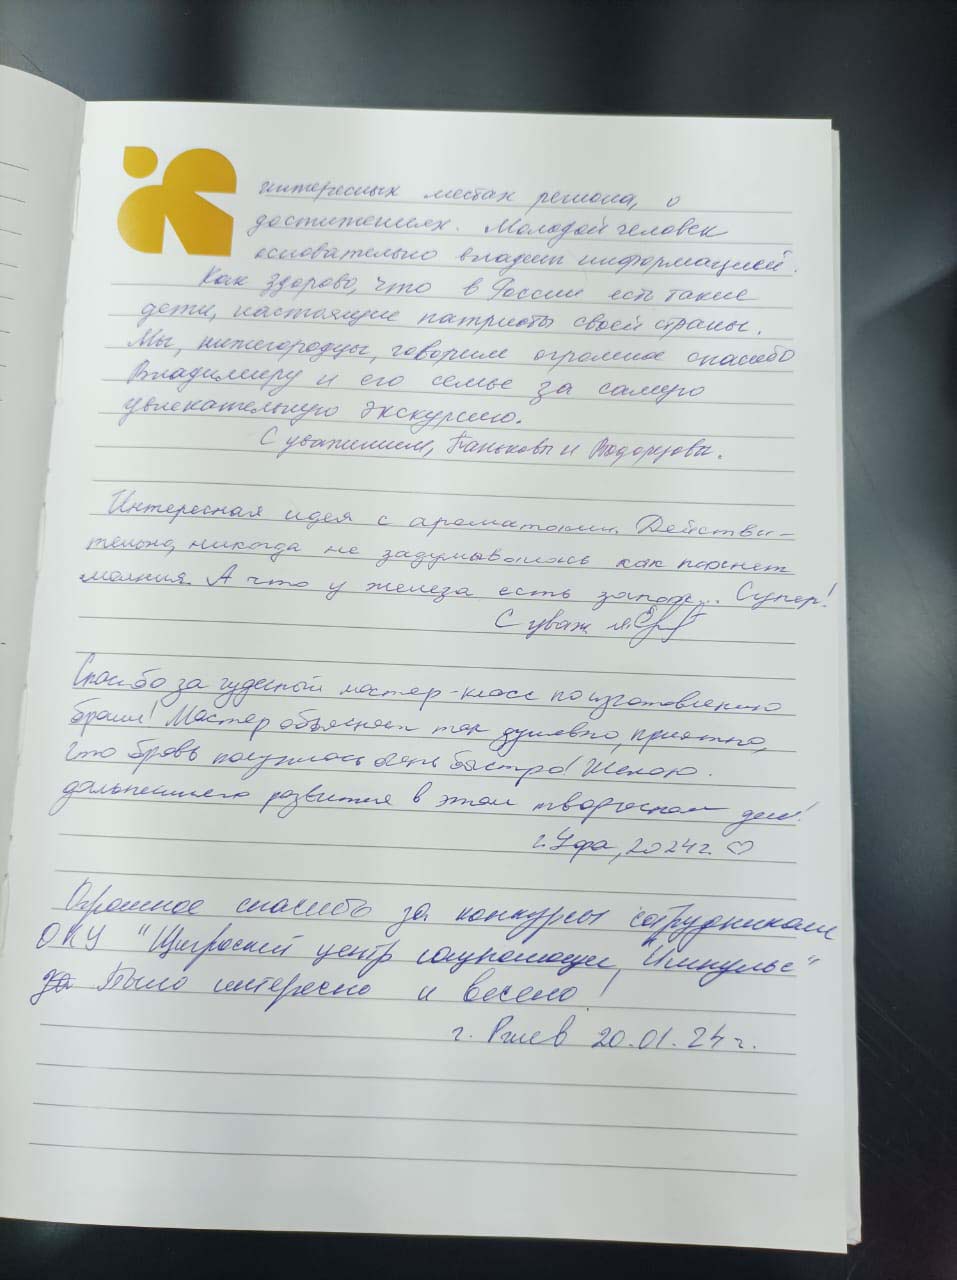 интересных местах региона, о
достижениях. Молодой человек
основательно владеет информацией.
Как здорово, что в России есть такие
дети, настоящие патриоты своей страны.
Мы, нижегородцы, говорим огромное спасибо
Владимиру и его семье за самую
увлекательную экскурсию.
С уважением, Паньковы и
Интересная идея с ароматами. Действи-
тельно, никогда не задумывалась как пахнет
молния. А что у железа есть запах... Супер!
С уваж.
Спасибо за чудесный мастер-класс по изготовлению
броши! Мастер объясняет так душевно, приятно,
что брошь получилась очень быстро! Желаю
дальнейшего развития в этом творческом деле!
г. Уфа, 2024г. ♡
Огромное спасибо за конкурсы сотрудникам
ОКУ "Щигровский центр соцпомощи "
Было интересно и весело!
г. Ржев 20.01.24 г.